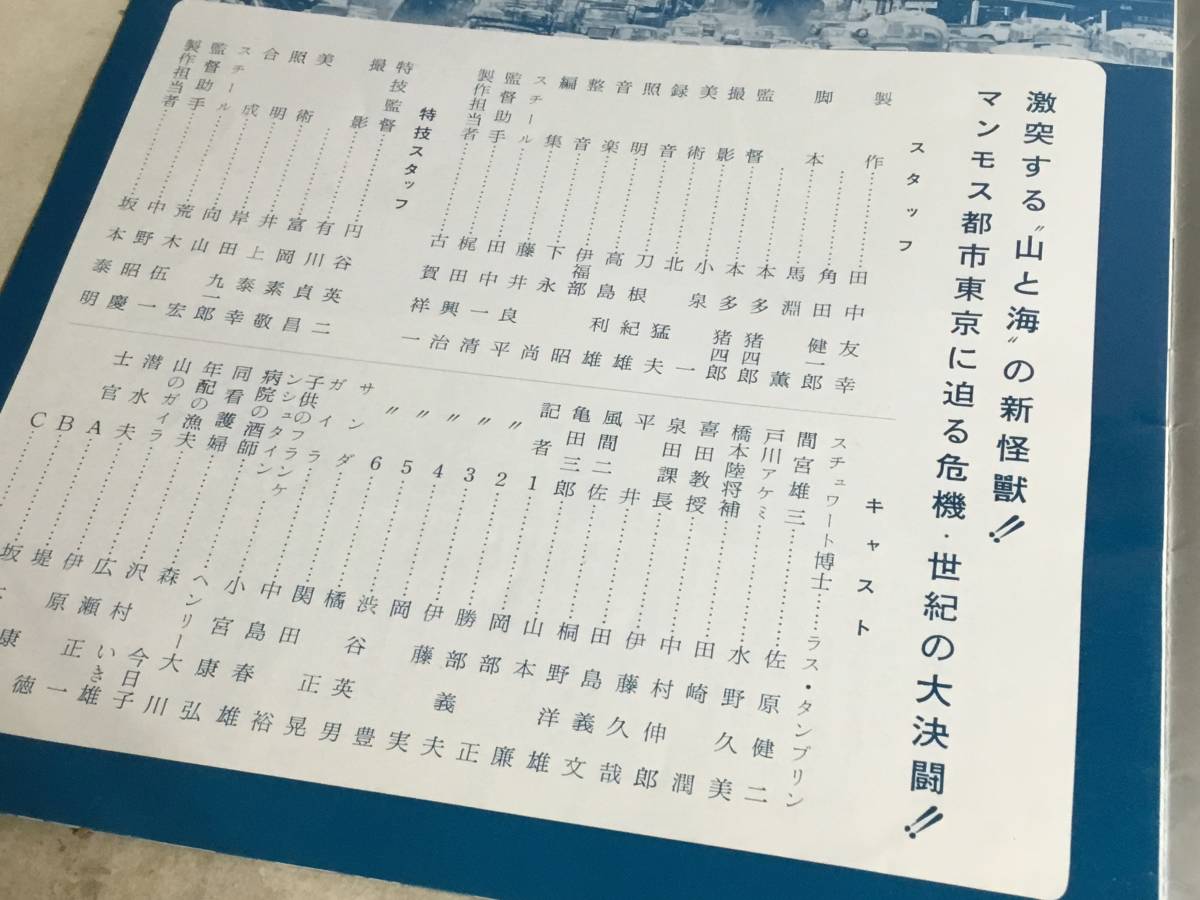 激突する“山と海”の新怪獸!!
マンモス都市東京に迫る危機・世紀の大決闘!!
スタッフ
製作……田中友幸
角田健一郎
脚本……馬淵薫
本多猪四郎
監督……本多猪四郎
撮影……小泉一
美術……北猛夫
録音……刀根紀雄
照明……高島利雄
音楽……伊福部昭
整音……下永尚
編集……藤井良平
スチール……田中一清
監督助手……梶田興治
製作担当者……古賀祥一
特技スタッフ
特技監督……円谷英二
撮影……有川貞昌
富岡素敬
美術……井上泰幸
照明……岸田九一郎
合成……向山宏
スチール……荒木伍一
監督助手……中野昭慶
製作担当者……坂本泰明
キャスト
スチュワート博士……ラス・タンブリン
間宮雄三……佐原健二
戸川アケミ……水野久美
橋本陸将補……田崎潤
喜田教授……中村伸郎
泉田課長……伊藤久哉
平井……田島義文
風間二佐……桐野洋雄
亀田三郎……山本廉
記者1……岡部正
〃2……勝部義夫
〃3……伊藤実
〃4……岡豊
〃5……渋谷英男
〃6……橘正晃
サンダ……関田裕
ガイラ……中島春雄
子供のフランケンシュタイン……小宮康弘
病院の醫師……ヘンリー大川
同看護婦……森今日子
年配の漁夫……沢村いき雄
山のガイラ……広瀬正一
潜水夫……伊原徳
士官A……堤康
B……坂
C